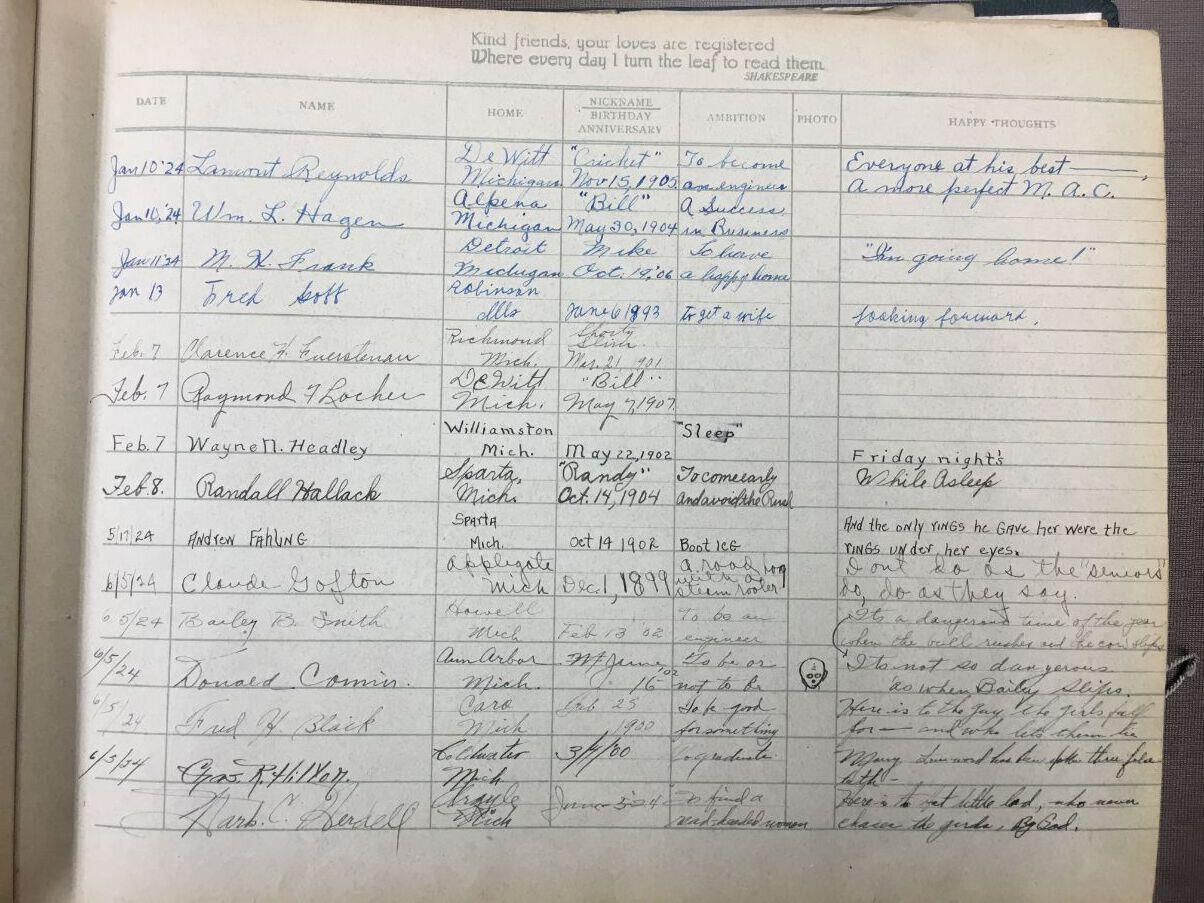 Kind friends, your loves are registered
Where every day I turn the leaf to read them.
SHAKESPEARE
DATE NAME HOME NICKNAME BIRTHDAY ANNIVERSARY AMBITION PHOTO HAPPY THOUGHTS
De Witt "Cricket" To become Everyone at his best —
Jan 10 '24 Lamont Reynolds Michigan Nov 15, 1905 an engineer A more perfect M. A. C.
Alpena "Bill" A Success
Jan 10, '24 Wm. L. Hagen Michigan May 30, 1904 in Business
Detroit Mike To have "I'm going home!"
Jan 11 '24 M. K. Frank Michigan Oct. 19, '06 a happy home
Jan 13 Fred Goff Robinson
Ills June 6 1893 to get a wife looking forward.
Richmond Shorty Slim
Feb. 7 Clarence F. Fuerstenau Mich. Mar. 21 1901
DeWitt "Bill"
Feb. 7 Raymond F Locher Mich. May 7, 1907
Williamston "Sleep"
Feb. 7 Wayne N. Headley Mich. May 22, 1902 Friday nights
Sparta, "Randy" To come early While Asleep
Feb. 8. Randall Hallack Mich. Oct. 14, 1904 and avoid the Rush
Sparta And the only rings he gave her were the
5/17/24 Andrew Fahling Mich. Oct 14 1902 Boot Leg rings under her eyes.
Applegate a road hog Don't do as the "seniors"
6/5/24 Claude Gofton Mich Dec. 1, 1899 with a steam rooler do, do as they say.
Howell To be an It's a dangerous time of the year
6 5/24 Bailey B. Smith Mich Feb 13 '02 engineer when the
Ann Arbor to be or "Its not so dangerous
6/5/24 Donald Comin. Mich. 16 '02 not to be as when Bailey slips.
Caro Feb 25 to be good Here is to the guy the girls fall
6/5/24 Fred H. Black Mich 1900 for something for — and who lets them lie
Coldwater to graduate Mary
6/5/24 Chas. R. Mich 3/4/00
Argyle To find a Here is to little lad, who never
Harb. C. Mich June red-headed women chases the girls, By God.